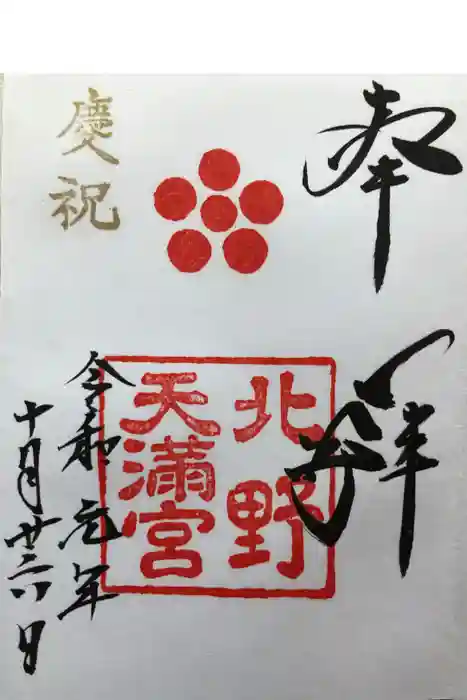 奉拝
北野
天満宮
慶祝
令和元年
十月廿六日